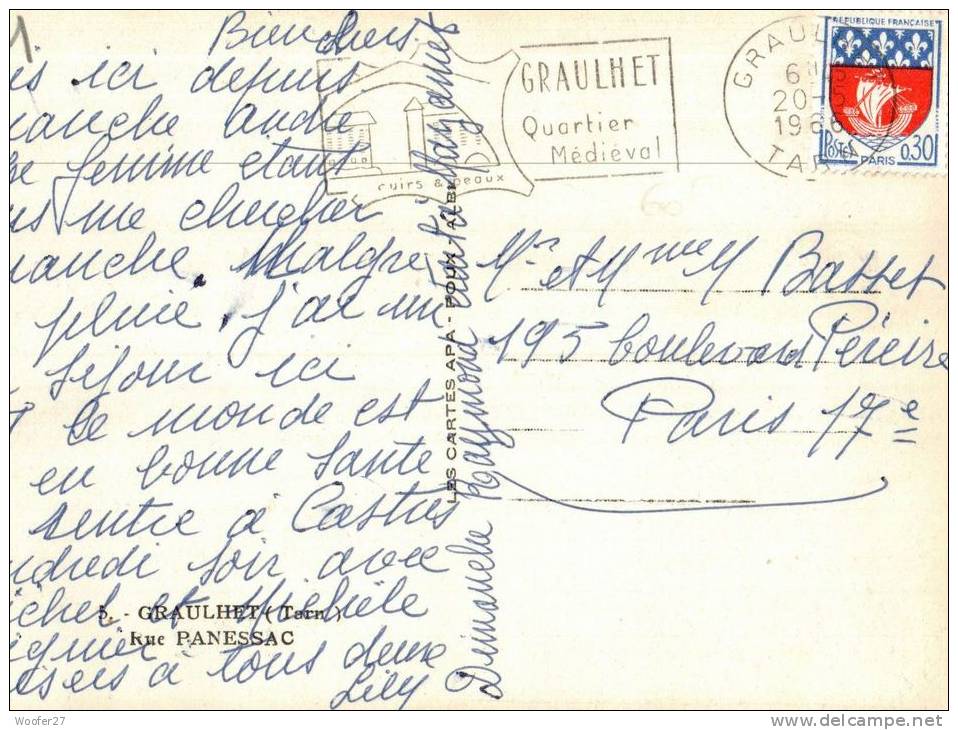 1
Bien chers.
is ici depuis
manche André
femme étant
me chercher
manche. Malgré
pluie, j'ai un
séjour ici
ce monde est
en bonne santé
rentre à Castres
ndredi soir avec
ichel et Michèle
à tous deux
Lily
Dimanche Raymond
LES CARTES APA - POUX - ALBI
5. - GRAULHET (Tarn)
Rue PANESSAC
cuirs & peaux
GRAULHET
Quartier
Médiéval
GRAULHET
20-5
1966
TARN
REPUBLIQUE FRANÇAISE
POSTES
PARIS
0,30
Mr et Mme M Basset
195 boulevard Péreire
Paris 17e
Woofer27
delcampe.net